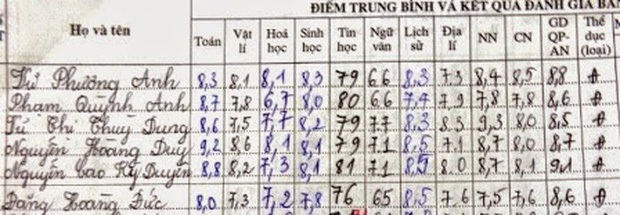 ĐIỂM TRUNG BÌNH VÀ KẾT QUẢ ĐÁNH GIÁ
Họ và tên Toán Vật lí Hoá học Sinh học Tin học Ngữ văn Lịch sử Địa lí NN CN GD QP-AN Thể dục (loại)
Từ Phương Anh 8,3 8,1 8,1 8,3 79 6.6 8,3 7.3 8,4 8,5 8,8 Đ
Phạm Quỳnh Anh 8,7 7,8 6,7 8,0 80 6.6 7,4 7.9 7,8 7,8 8,6 Đ
Từ Thị Thuỳ Dung 8,6 7,5 7,7 8,2 79 7.7 8,3 8.3 9,3 8.0 8,5 Đ
Nguyễn Hoàng Duy 9,2 8,6 8,1 8,1 79 7.1 8,5 7.1 8,7 8.0 8,7 Đ
Nguyễn Cao Kỳ Duyên 8,8 8,2 7,3 8,1 81 7.1 8,5 8.0 8,7 8,1 9,1 Đ
Đặng Hoàng Đức 8,0 7,3 7,2 7,8 76 6.5 8,5 7.6 7,5 7,6 8,6 Đ